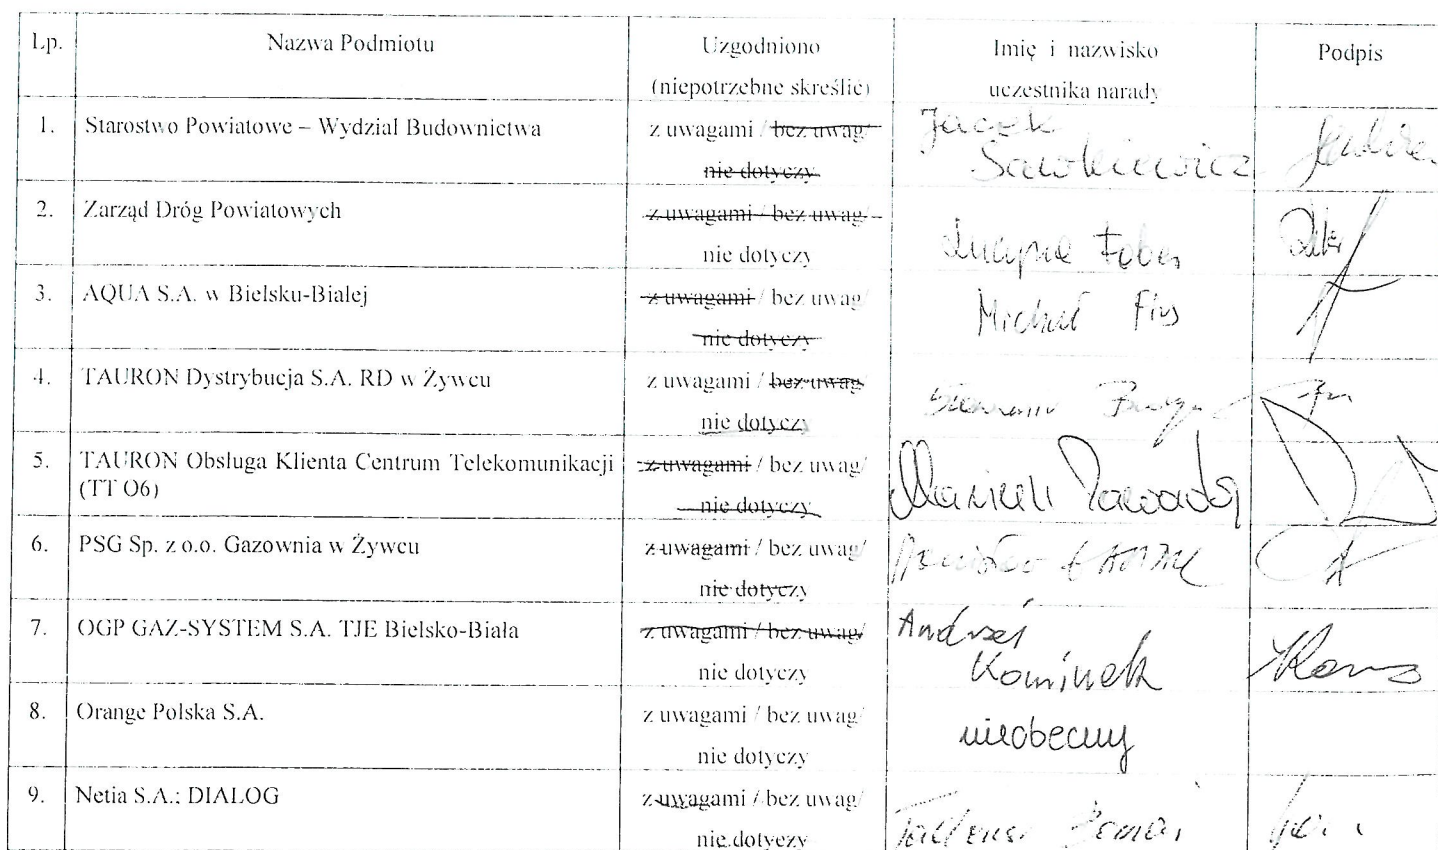 Lp. Nazwa Podmiotu Uzgodniono Imię i nazwisko Podpis
(niepotrzebne skreślić) uczestnika narady
1. Starostwo Powiatowe – Wydział Budownictwa z uwagami / bez uwag/ Jacek
nie dotyczy Sawkiewicz
2. Zarząd Dróg Powiatowych z uwagami / bez uwag/
nie dotyczy
3. AQUA S.A. w Bielsku-Białej z uwagami / bez uwag/ Michał
nie dotyczy
4. TAURON Dystrybucja S.A. RD w Żywcu z uwagami / bez uwag/
nie dotyczy
5. TAURON Obsługa Klienta Centrum Telekomunikacji z uwagami / bez uwag/
(TT O6)
nie dotyczy
6. PSG Sp. z o.o. Gazownia w Żywcu z uwagami / bez uwag/
nie dotyczy
7. OGP GAZ-SYSTEM S.A. TJE Bielsko-Biała z uwagami / bez uwag/ Andrzej
nie dotyczy Kominek
8. Orange Polska S.A. z uwagami / bez uwag/ nieobecny
nie dotyczy
9. Netia S.A.; DIALOG z uwagami / bez uwag/
nie dotyczy